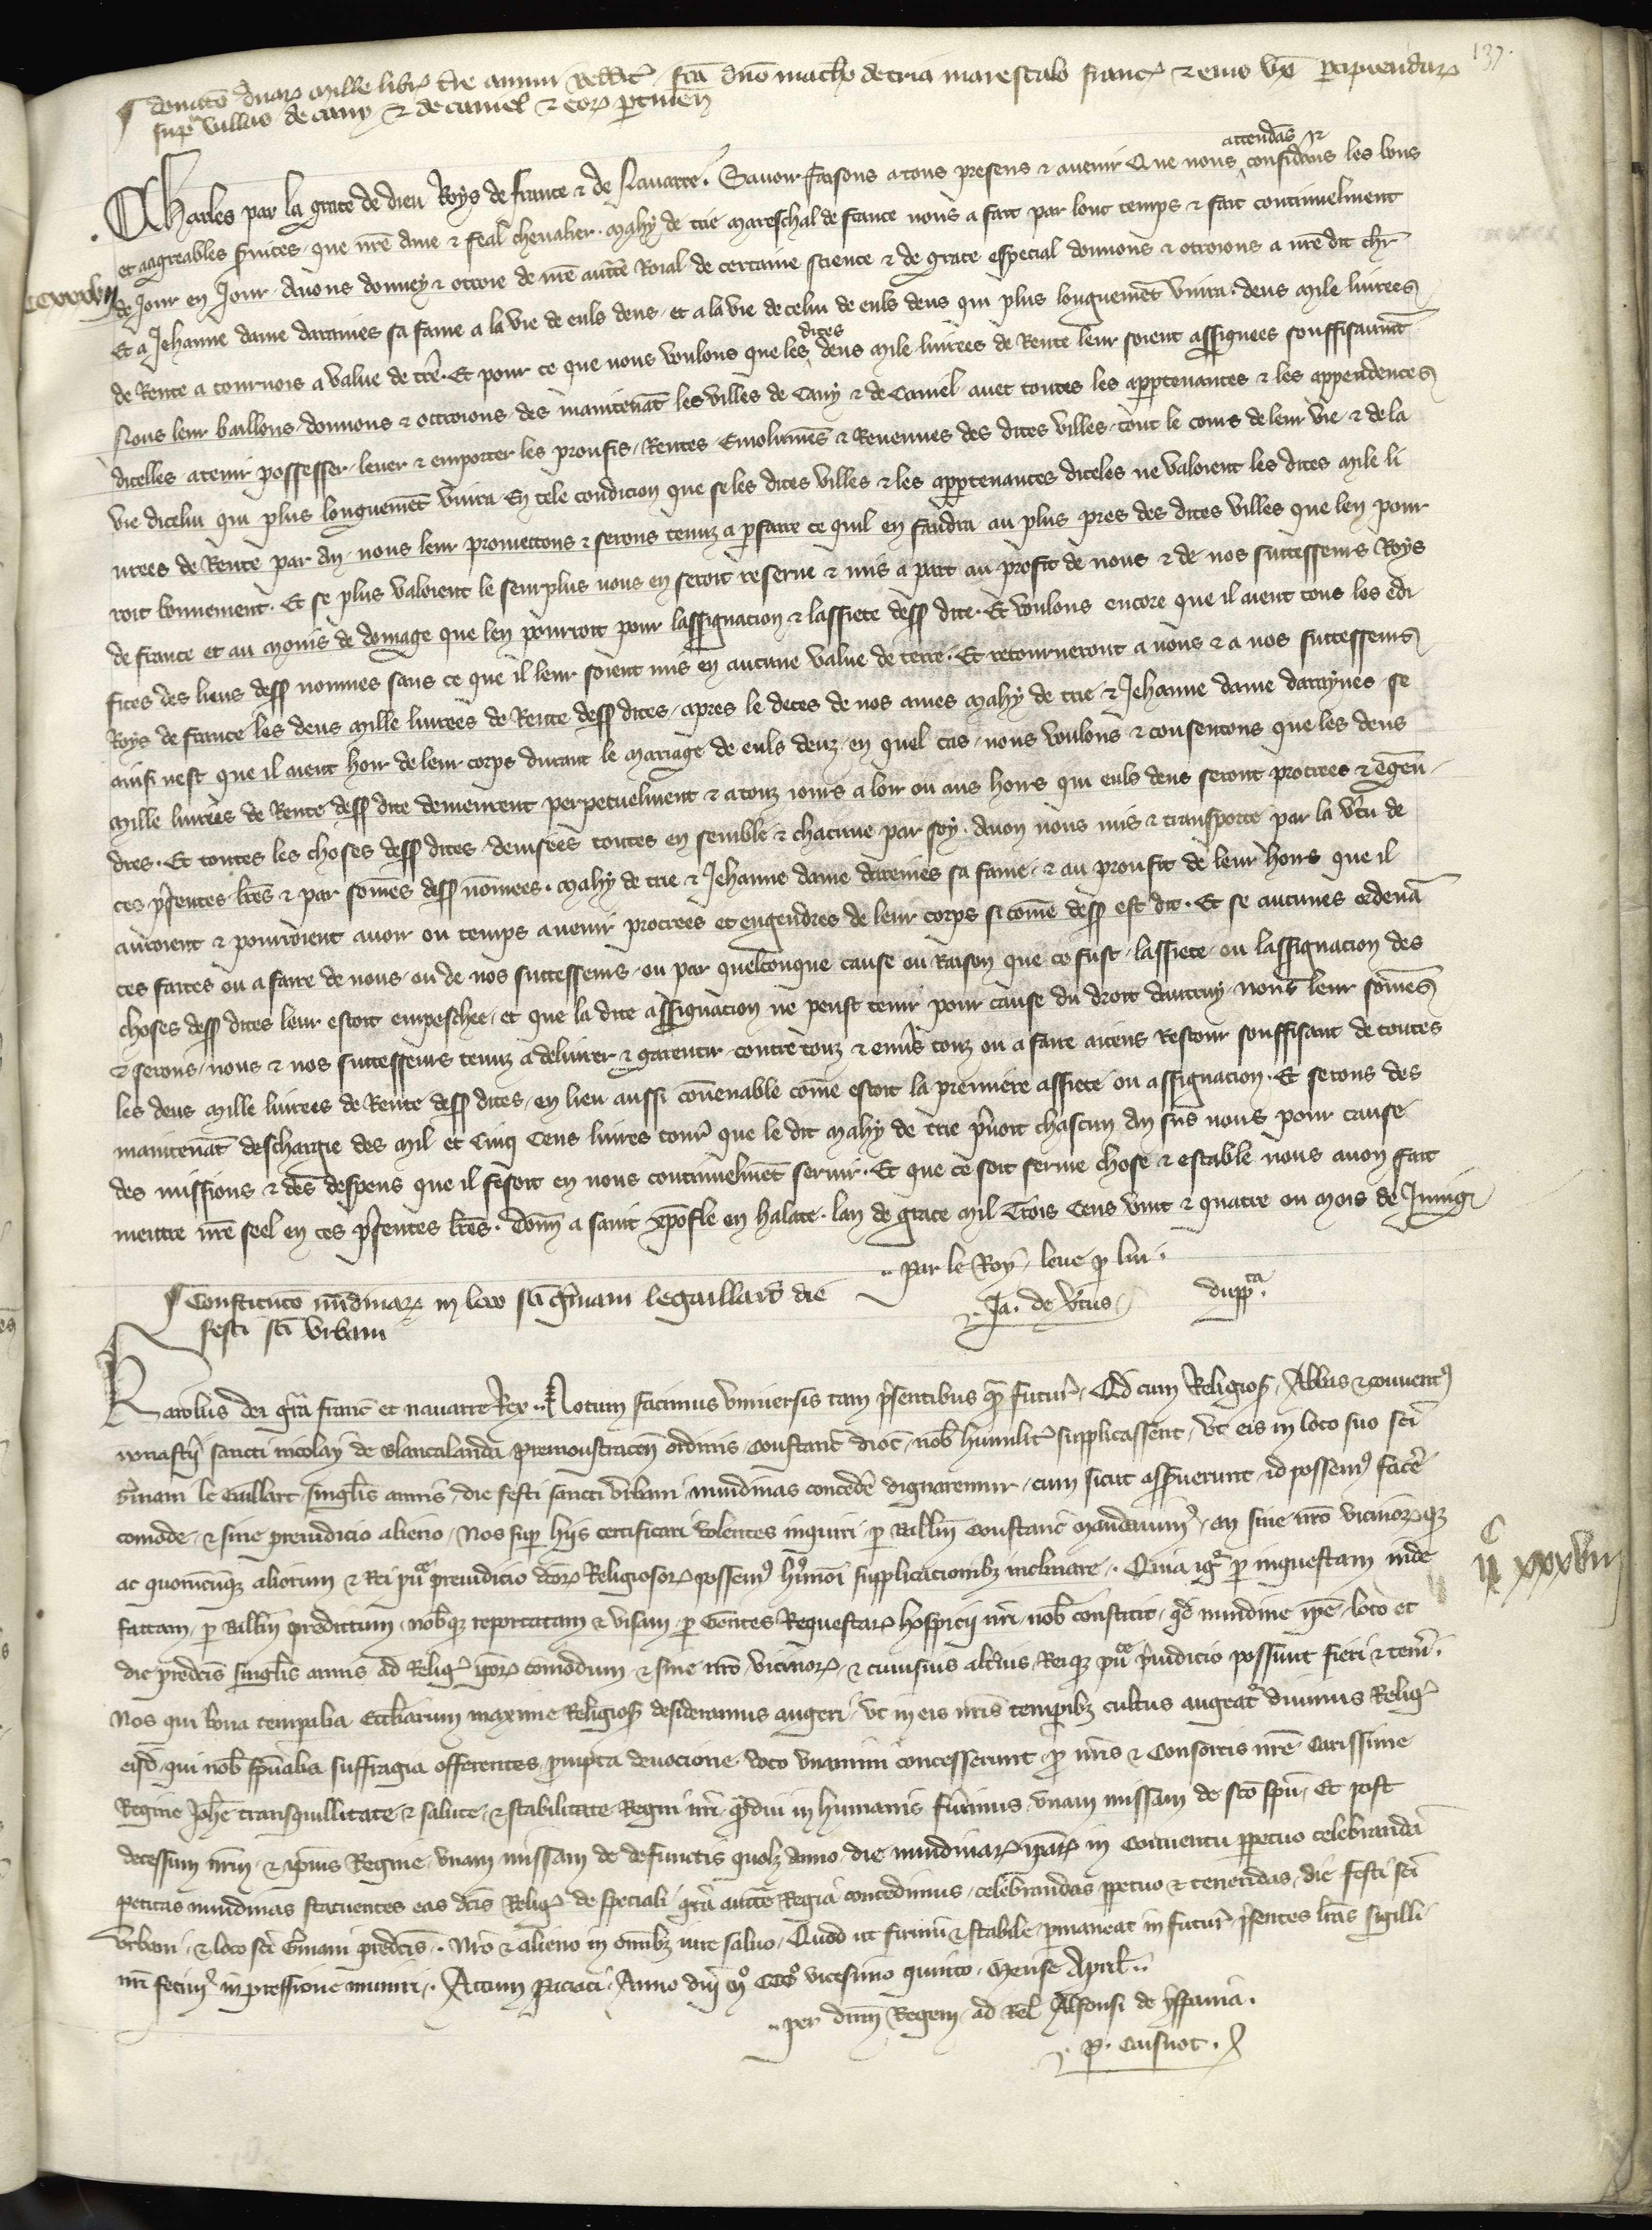 137.
¶ Donatō duarꝝ mille librꝝ t̄re annui reddit᷑ fc̄a dn̄o matho de tria marescalo francꝝ & eius ux̄ percipiendarꝝ
sup villas de cany & de caniel & eorꝝ ꝑtinen̄
attendās &
Charles par la grace de dieu Roys de france & de Nauarre. Sauoir faisons a tous presens & auenir Que nous considerans les bons
et aagreables seruices que nr̄e ame & feal cheualier. Mahy de trie Mareschal de france nous a fait par lonc temps & fait continuelment
CCXXXVII
de Jour en Jour. Auons donney & ottroie de nr̄e auct̄e Roial de certaine science & de grace especial donnons & ottroions a nr̄e dit chr̄
Et a Jehanne dame daraines sa fame a la vie de euls deus. et a la vie de celui de euls deus qui plus longuemēt viura. deus mile liurees
dites
de Rente a tournois a value de t̄re. Et pour ce que nous voulons que les deus mile liurees de Rente leur soient assignees souffisaumēt
Nous leur baillons donnons & ottroions des maintenāt les villes de Cany & de Caniel auec toutes les appartenances & les appendences
dicelles a tenir possesser leuer & emporter les proufis. Rentes. Emolumēs & Reuenues des dites villes. tout le cours de leur vie. & de la
vie dicelui qui plus longuemēt viura. En tele condicion que se les dites villes & les appartenances diceles ne valoient les dites mile li
urees de Rente par an. nous leur promettons & serons tenuz a parfaire ce quil en faudra au plus pres des dites villes que len pour
roit bonnement. Et se plus valoient le seurplus nous en seroit reserue & mis a part au profit de nous & de nos successeurs Roys
de france et au moins de domage que len pourroit pour lassignacion & lassiete dess̄ dite. Et voulons encore que il aient tous les edi
fices des lieus dess̄ nommes sans ce que il leur soient mis en aucune value de terre. Et retourneront a nous & a nos successeurs
Roys de france les deus mille liurees de Rente dess̄ dites. apres le deces de nos ames Mahy de trie & Jehanne dame daraynes se
ainsi nest que il aient hoir de leur corps durant le mariage de euls deuz. en quel cas. nous voulons & consentons que les deus
mille liurees de Rente dess̄ dite demeurent perpetuelment & a touz iours a loir ou aus hoirs qui euls deus seront procrees & ēgen
dres. Et toutes les choses dess̄ dites. deuisees toutes en semble & chacune par soy. auon nous mis & transporte par la v̄tu de
ces p̄sentes lr̄es & par somēs dess̄ nōmees. Mahy de trie & Jehanne dame daraines sa fame. & au proufit de leur hoirs que il
auroient & pourroient auoir ou temps auenir procrees et engendres de leur corps si comē dess̄ est dit. Et se aucunes ordenā
ces faites ou a faire de nous. ou de nos successeurs. ou par quelconque cause ou Raison que ce fust. lassiete ou lassignacion des
choses dess̄ dites leur estoit empeschee. et que la dite assignacion ne peust tenir pour cause du droit dautruy. nous leur somēs
& serons. nous & nos successeurs tenuz a deliurer & garentir contre touz & enūs touz ou a faire aceus Restour souffisant de toutes
les deus mille liurees de Rente dess̄ dites. en lieu aussi cōuenable comē estoit la premiere assiete ou assignacion. Et serons des
maintenāt deschargie des mil et Cinq Cens liures tour᷑ que le dit Mahy de trie p̄noit chascun an sus nous pour cause
des missions & des despens que il fesoit en nous continuelmēt seruir. Et que ce soit ferme chose & estable nous auon fait
mettre nr̄e seel en ces p̄sentes lr̄es. Donn̄ a saint xp̄ofle en halate. lan de grace mil Trois Cens vint & quatre ou mois de Juing
.. Par le Roy. leue p lui.
Ja. de v̄tus
dupp̄ta.
¶ Constitutō nūdinarꝝ in loco sc̄i gr̄mani legaillard die
festi sc̄i Vrbani
Karolus dei gr̄a franc̄ et nauarre Rex.. Notum facimus vniuersis tam p̄sentibus qm̄ futur᷑. Qd̄ cum Religios̄. Abbas & conuentꝰ
monastr̄ij sancti nicolay de Blancalanda premonstracen̄ ordinis. Constanc̄ dioc̄. nob̄ humilit᷑ supplicassent. vt eis in loco suo sc̄i
Gr̄mani le Gaillart singlis annis. die festi sancti Vrbani nundinas concedē dignaremur. cum sicut asseruerunt. id possemꝰ facē
comode. & sine preiudicio alieno. Nos sup hijs certificari volentes inquiri. ꝑ Balliū Constanc̄ mandauimꝰ. an sine nr̄o vicinorꝝqꝫ
CC
II XXXVIII
ac quorūcūqꝫ aliorum & Rei pu᷑ce preiudicio dc̄orꝝ Religiosorꝝ possemꝰ hmōi supplicacionibꝫ inclinare.. Quia igr̄ ꝑ inquestam inde
factam. ꝑ Balliū predictum. nob̄qꝫ reportatam & visam. ꝑ Gentes Requestarꝝ hospicij nr̄i. nob̄ constitit. qd̄ nundine ip̄e. loco et
die predc̄is singlis annis ad Relig᷑ ip̄orꝝ comodum. & sine nr̄o. vicinorꝝ. & cuiusuis alt̄ius. Reiqꝫ pu᷑ce p̄iudicio possunt fieri & tenr̄i.
Nos qui bona temporalia Eccl̄iarum maxime Religios̄ desideramus augeri. vt in eis nr̄is temporibꝫ cultus augeat᷑ diuinus Relig᷑
eisd̄. qui nob̄ spūalia suffragia offerentes. prompta deuocione. voto vnanimi concesserunt. pro nr̄is & Consortis nr̄e Carissime
Regine Joh̄e tranquillitate & salute. & stabilitate Regni nr̄i. q̄diu in humanis fuerimus. vnam missam de sc̄o spū. Et post
decessum nr̄m. & ip̄ius Regine. vnam missam de defunctis quolꝫ anno. die nundinarꝝ ip̄arꝝ in Conuentu ppetuo celebrandā
petitas nundinas statuentes eas dc̄is Relig᷑ de speciali gr̄a auct̄e Regia concedimus. celebrandas ppetuo & tenendas. die festi sc̄i
Vrbani. & loco sc̄i Gr̄mani predc̄is.. Nr̄o & alieno in omībꝫ iure saluo. Quod ut firmū & stabile ꝑmaneat in futur᷑ p̄sentes lr̄as sigilli
nr̄i fecimꝰ inpressione muniri.. Actum Paciaci. Anno dn̄i mº CCCº vicesimo quinto. Mense April̄..
..per dn̄m Regem. ad Rel̄ Alfonsi de yspania.
P. Caisnot.